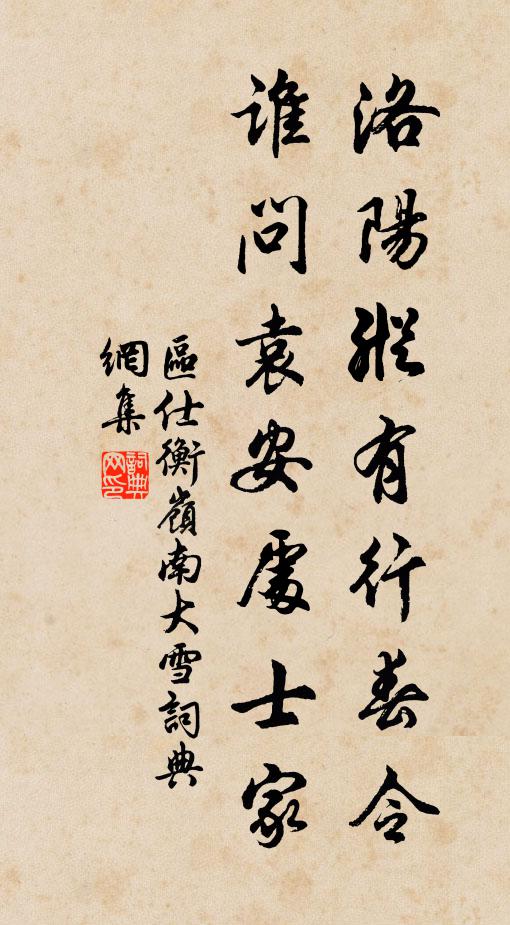 洛陽縱有行春令
誰問袁安處士家
區仕衡嶺南大雪詞典
網集
詞典
网印